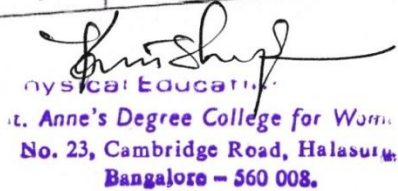 nysical Educati
t. Anne's Degree College for Wom
No. 23, Cambridge Road, Halasuru,
Bangalore – 560 008.